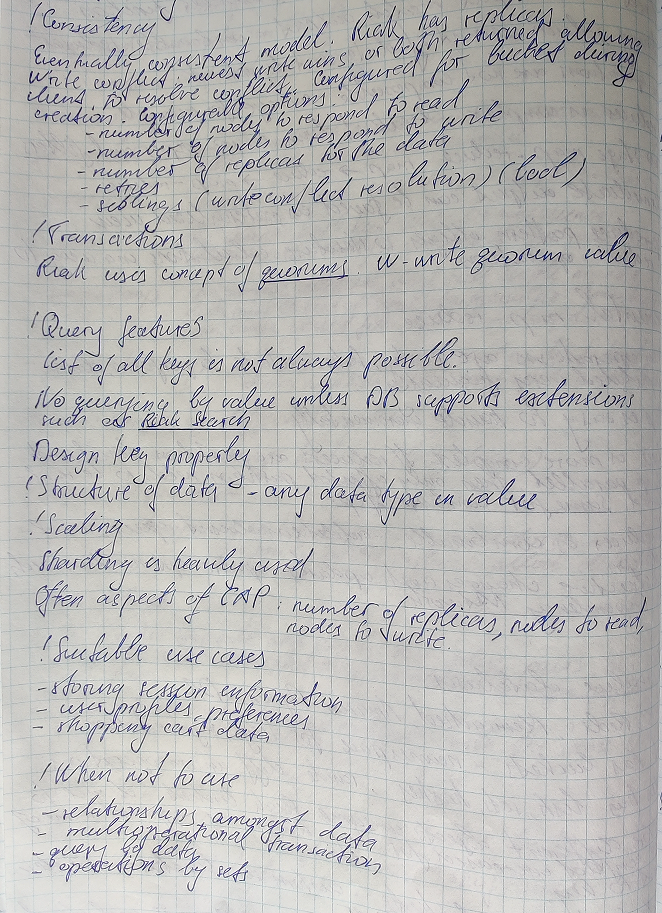 ! Consistency
Eventually consistent model. Riak has replicas.
Write conflict: newest write wins or both returned allowing
client to resolve conflict. Configured for bucket during
creation. Configurable options:
- number of nodes to respond to read
- number of nodes to respond to write
- number of replicas for the data
- retries
- siblings (write conflict resolution) (bool)
! Transactions
Riak uses concept of quorums. W-write quorum value
! Query features
List of all keys is not always possible.
No querying by value unless DB supports extensions
such as Riak Search
Design key properly
! Structure of data - any data type in value
! Scaling
Sharding is heavily used
Often aspects of CAP: number of replicas, nodes to read,
nodes to write.
! Suitable use cases
- storing session information
- user profiles, preferences
- shopping cart data
! When not to use
- relationships amongst data
- multioperational transaction
- query by data
- operations by sets